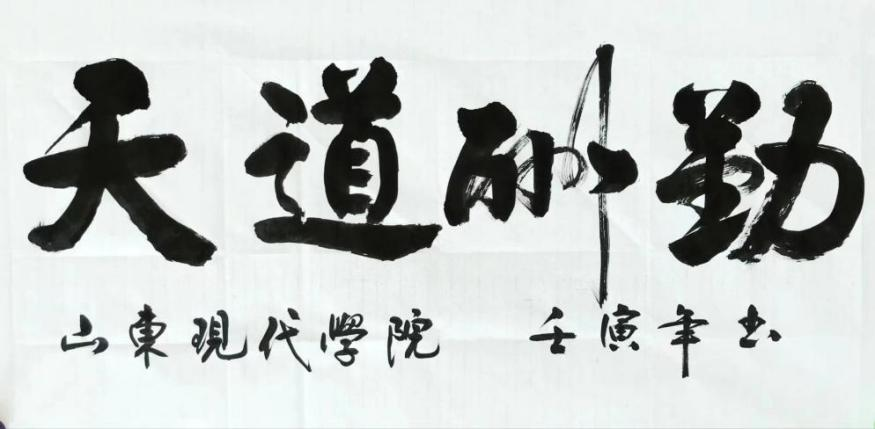 天道酬勤
山東現代學院 壬寅年书